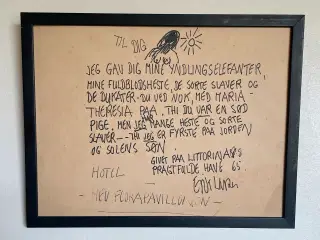 TIL DIG
JEG GAV DIG MINE YNDLINGSELEFANTER,
MINE FULDBLODSHESTE, DE SORTE SLAVER OG
DE DUKATER - DU VED NOK, MED MARIA
THERESIA PAA. THI DU VAR EN SØD
PIGE, MEN JEG MANGE HESTE OG SORTE
SLAVER - THI JEG ER FYRSTE PAA JORDEN
OG SOLENS SØN.
GIVET PAA LITTORINAS
PRAGTFULDE HAVE 65
HOTEL
- MED FLORAPAVILLONGEN -